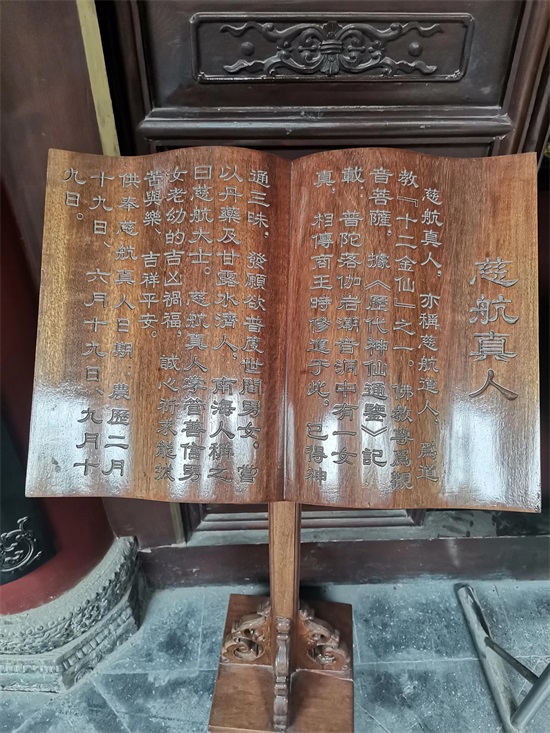 慈航真人
慈航真人，亦稱慈航道人，爲道
教『十二金仙』之一。佛教尊爲觀
音菩薩，據《歷代神仙通鑒》記
載，普陀落伽岩潮音洞中有一女
真，相傳商王時修道于此，已得神
通三昧，發願欲普度世間男女。嘗
以丹藥及甘露水濟人，南海人稱之
曰慈航大士。慈航真人掌管善信男
女老幼的吉凶禍福，誠心祈求能滅
苦與樂、吉祥平安。
供奉慈航真人日期：農歷二月
十九日、六月十九日、九月十
九日。